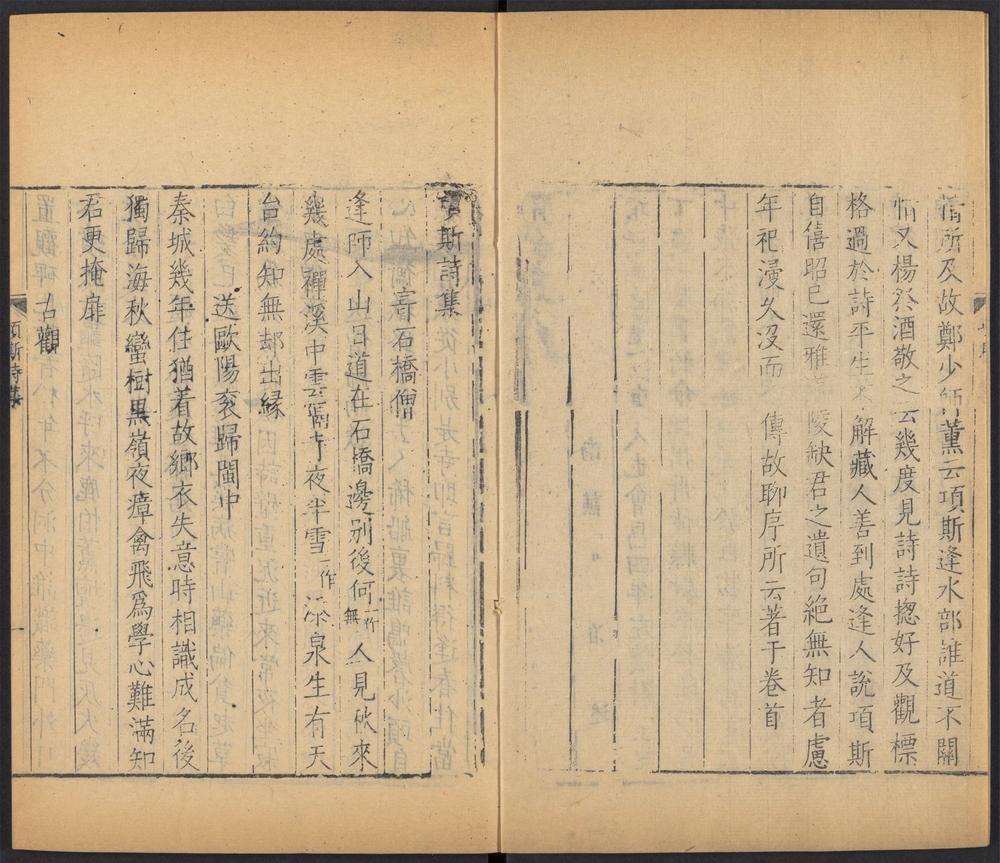 情所及故鄭少師薰云項斯逢水部誰道不關
情又楊祭酒敬之云幾度見詩詩揔好及觀標
格過於詩平生不解藏人善到處逢人說項斯
自僖昭已還雅陵缺君之遺句絶無知者慮
年祀漫久没而傳故聊序所云著于卷首
項斯詩集
寄石橋僧
逢師入山日道在石橋邊别後何一作無人見秋來
幾處禪溪中雲隔寺夜半雪一作添泉生有天
台約知無却出緣
送歐陽衮歸閩中
秦城幾年住猶着故鄉衣失意時相識成名後
獨歸海秋蠻樹黒嶺夜瘴禽飛爲學心難滿知
君更掩扉
古觀
項斯詩集
一